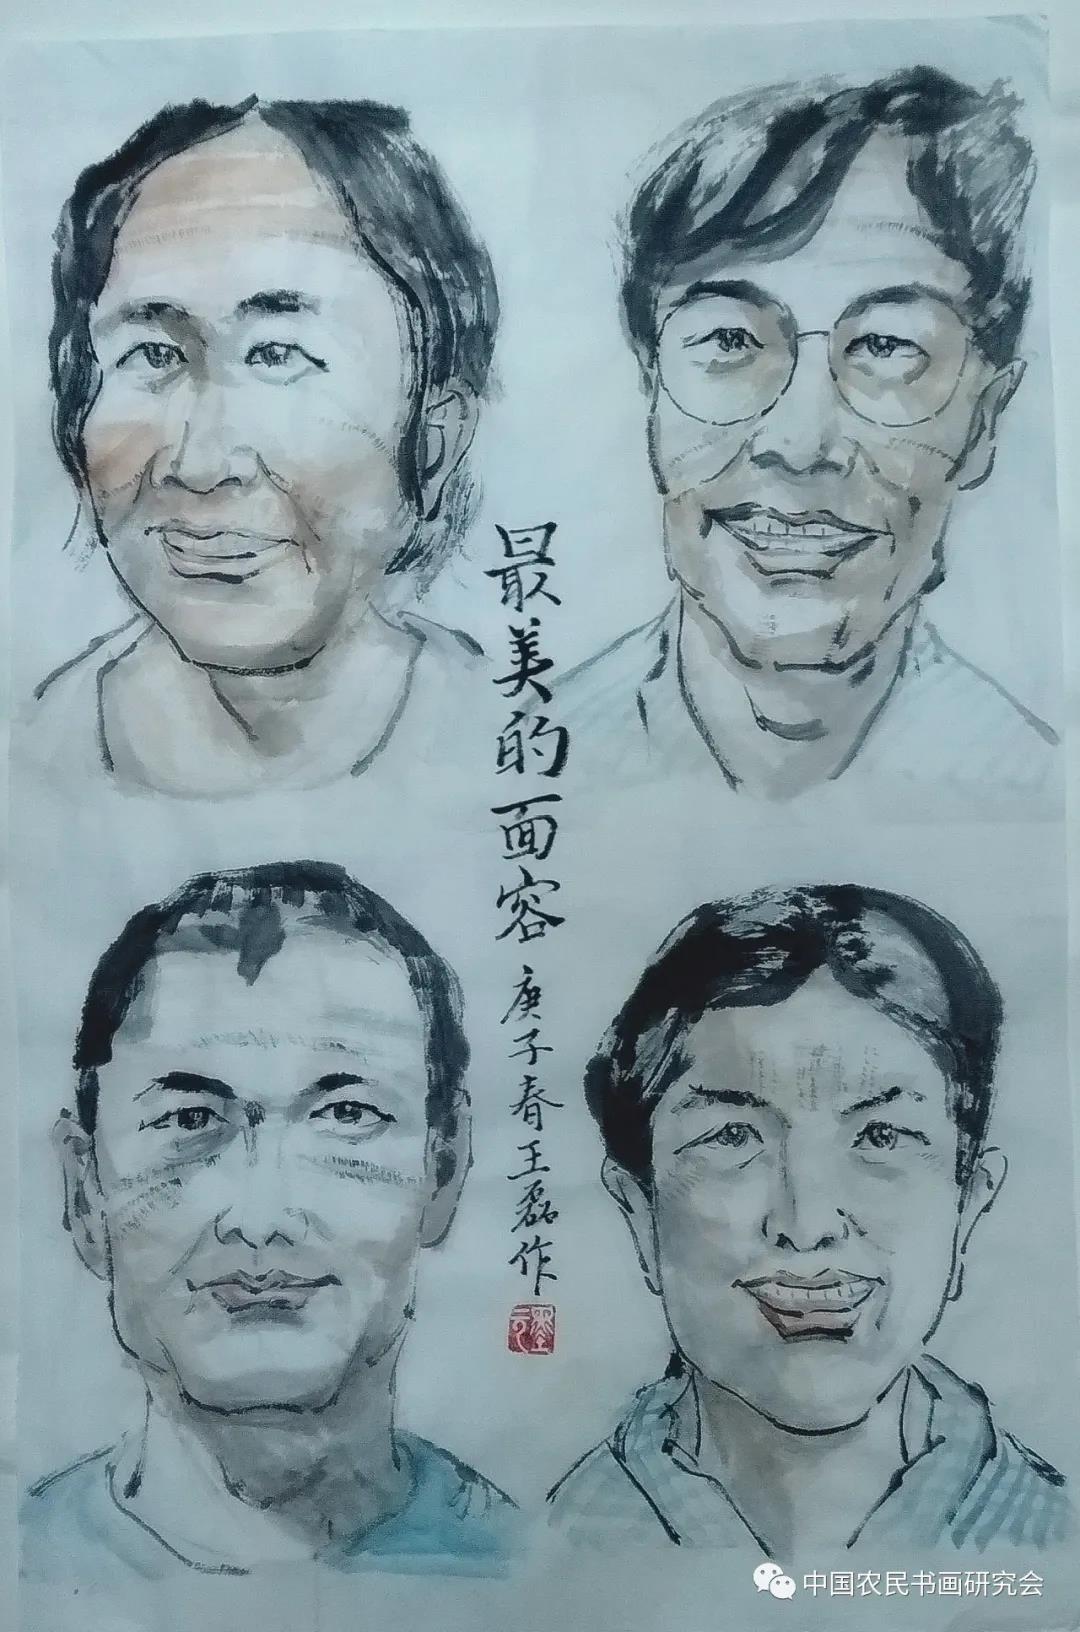 最美的面容 庚子春王磊作
中国农民书画研究会